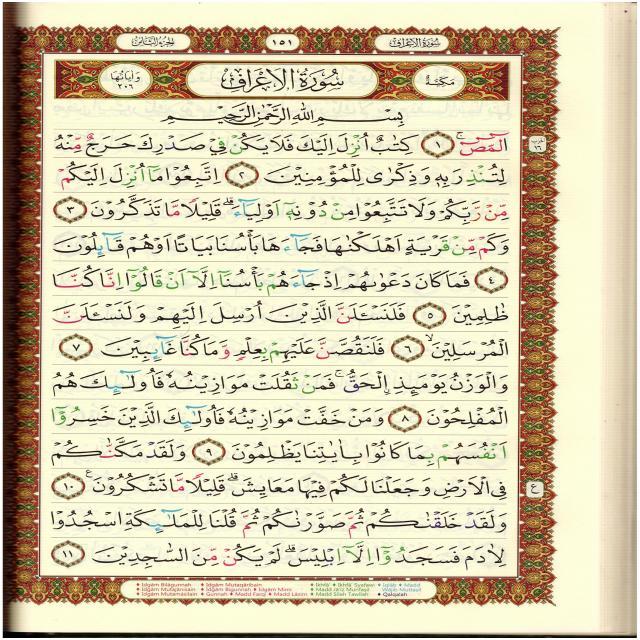 سُورَةُ الْاَعْرَافِ ١٥١ اَلْجُزْءُ الثَّامِنُ
مَكِّيَّةٌ سُورَةُ الْاَعْرَافِ وَاٰيَاتُهَا ٢٠٦
بِسْمِ اللهِ الرَّحْمٰنِ الرَّحِيْمِ
الٓمٓصٓ ۚ ١ كِتٰبٌ اُنْزِلَ اِلَيْكَ فَلَا يَكُنْ فِيْ صَدْرِكَ حَرَجٌ مِّنْهُ
لِتُنْذِرَ بِهٖ وَذِكْرٰى لِلْمُؤْمِنِيْنَ ٢ اِتَّبِعُوْا مَآ اُنْزِلَ اِلَيْكُمْ
مِّنْ رَّبِّكُمْ وَلَا تَتَّبِعُوْا مِنْ دُوْنِهٖٓ اَوْلِيَاۤءَۗ قَلِيْلًا مَّا تَذَكَّرُوْنَ ٣
وَكَمْ مِّنْ قَرْيَةٍ اَهْلَكْنٰهَا فَجَاۤءَهَا بَأْسُنَا بَيَاتًا اَوْ هُمْ قَاۤىِٕلُوْنَ
٤ فَمَا كَانَ دَعْوٰىهُمْ اِذْ جَاۤءَهُمْ بَأْسُنَآ اِلَّآ اَنْ قَالُوْٓا اِنَّا كُنَّا
ظٰلِمِيْنَ ٥ فَلَنَسْـَٔلَنَّ الَّذِيْنَ اُرْسِلَ اِلَيْهِمْ وَلَنَسْـَٔلَنَّ
الْمُرْسَلِيْنَۙ ٦ فَلَنَقُصَّنَّ عَلَيْهِمْ بِعِلْمٍ وَّمَا كُنَّا غَاۤىِٕبِيْنَ ٧
وَالْوَزْنُ يَوْمَىِٕذِ ِۨالْحَقُّۚ فَمَنْ ثَقُلَتْ مَوَازِيْنُهٗ فَاُولٰۤىِٕكَ هُمُ
الْمُفْلِحُوْنَ ٨ وَمَنْ خَفَّتْ مَوَازِيْنُهٗ فَاُولٰۤىِٕكَ الَّذِيْنَ خَسِرُوْٓا
اَنْفُسَهُمْ بِمَا كَانُوْا بِاٰيٰتِنَا يَظْلِمُوْنَ ٩ وَلَقَدْ مَكَّنّٰكُمْ
فِى الْاَرْضِ وَجَعَلْنَا لَكُمْ فِيْهَا مَعَايِشَۗ قَلِيْلًا مَّا تَشْكُرُوْنَ ࣖ ١٠
وَلَقَدْ خَلَقْنٰكُمْ ثُمَّ صَوَّرْنٰكُمْ ثُمَّ قُلْنَا لِلْمَلٰۤىِٕكَةِ اسْجُدُوْا
لِاٰدَمَ فَسَجَدُوْٓا اِلَّآ اِبْلِيْسَۗ لَمْ يَكُنْ مِّنَ السّٰجِدِيْنَ ١١
Idgam Bilagunnah Idgam Mutaqaribain Ikhfa' Ikhfa' Syafawi Iqlab Madd
Idgam Mutajanisain Idgam Bigunnah Idgam Mimi Madd Ja'iz Munfasil Wajib Muttasil
Idgam Mutamasilain Gunnah Madd Farqi Madd Lazim Madd Silah Tawilah Qalqalah